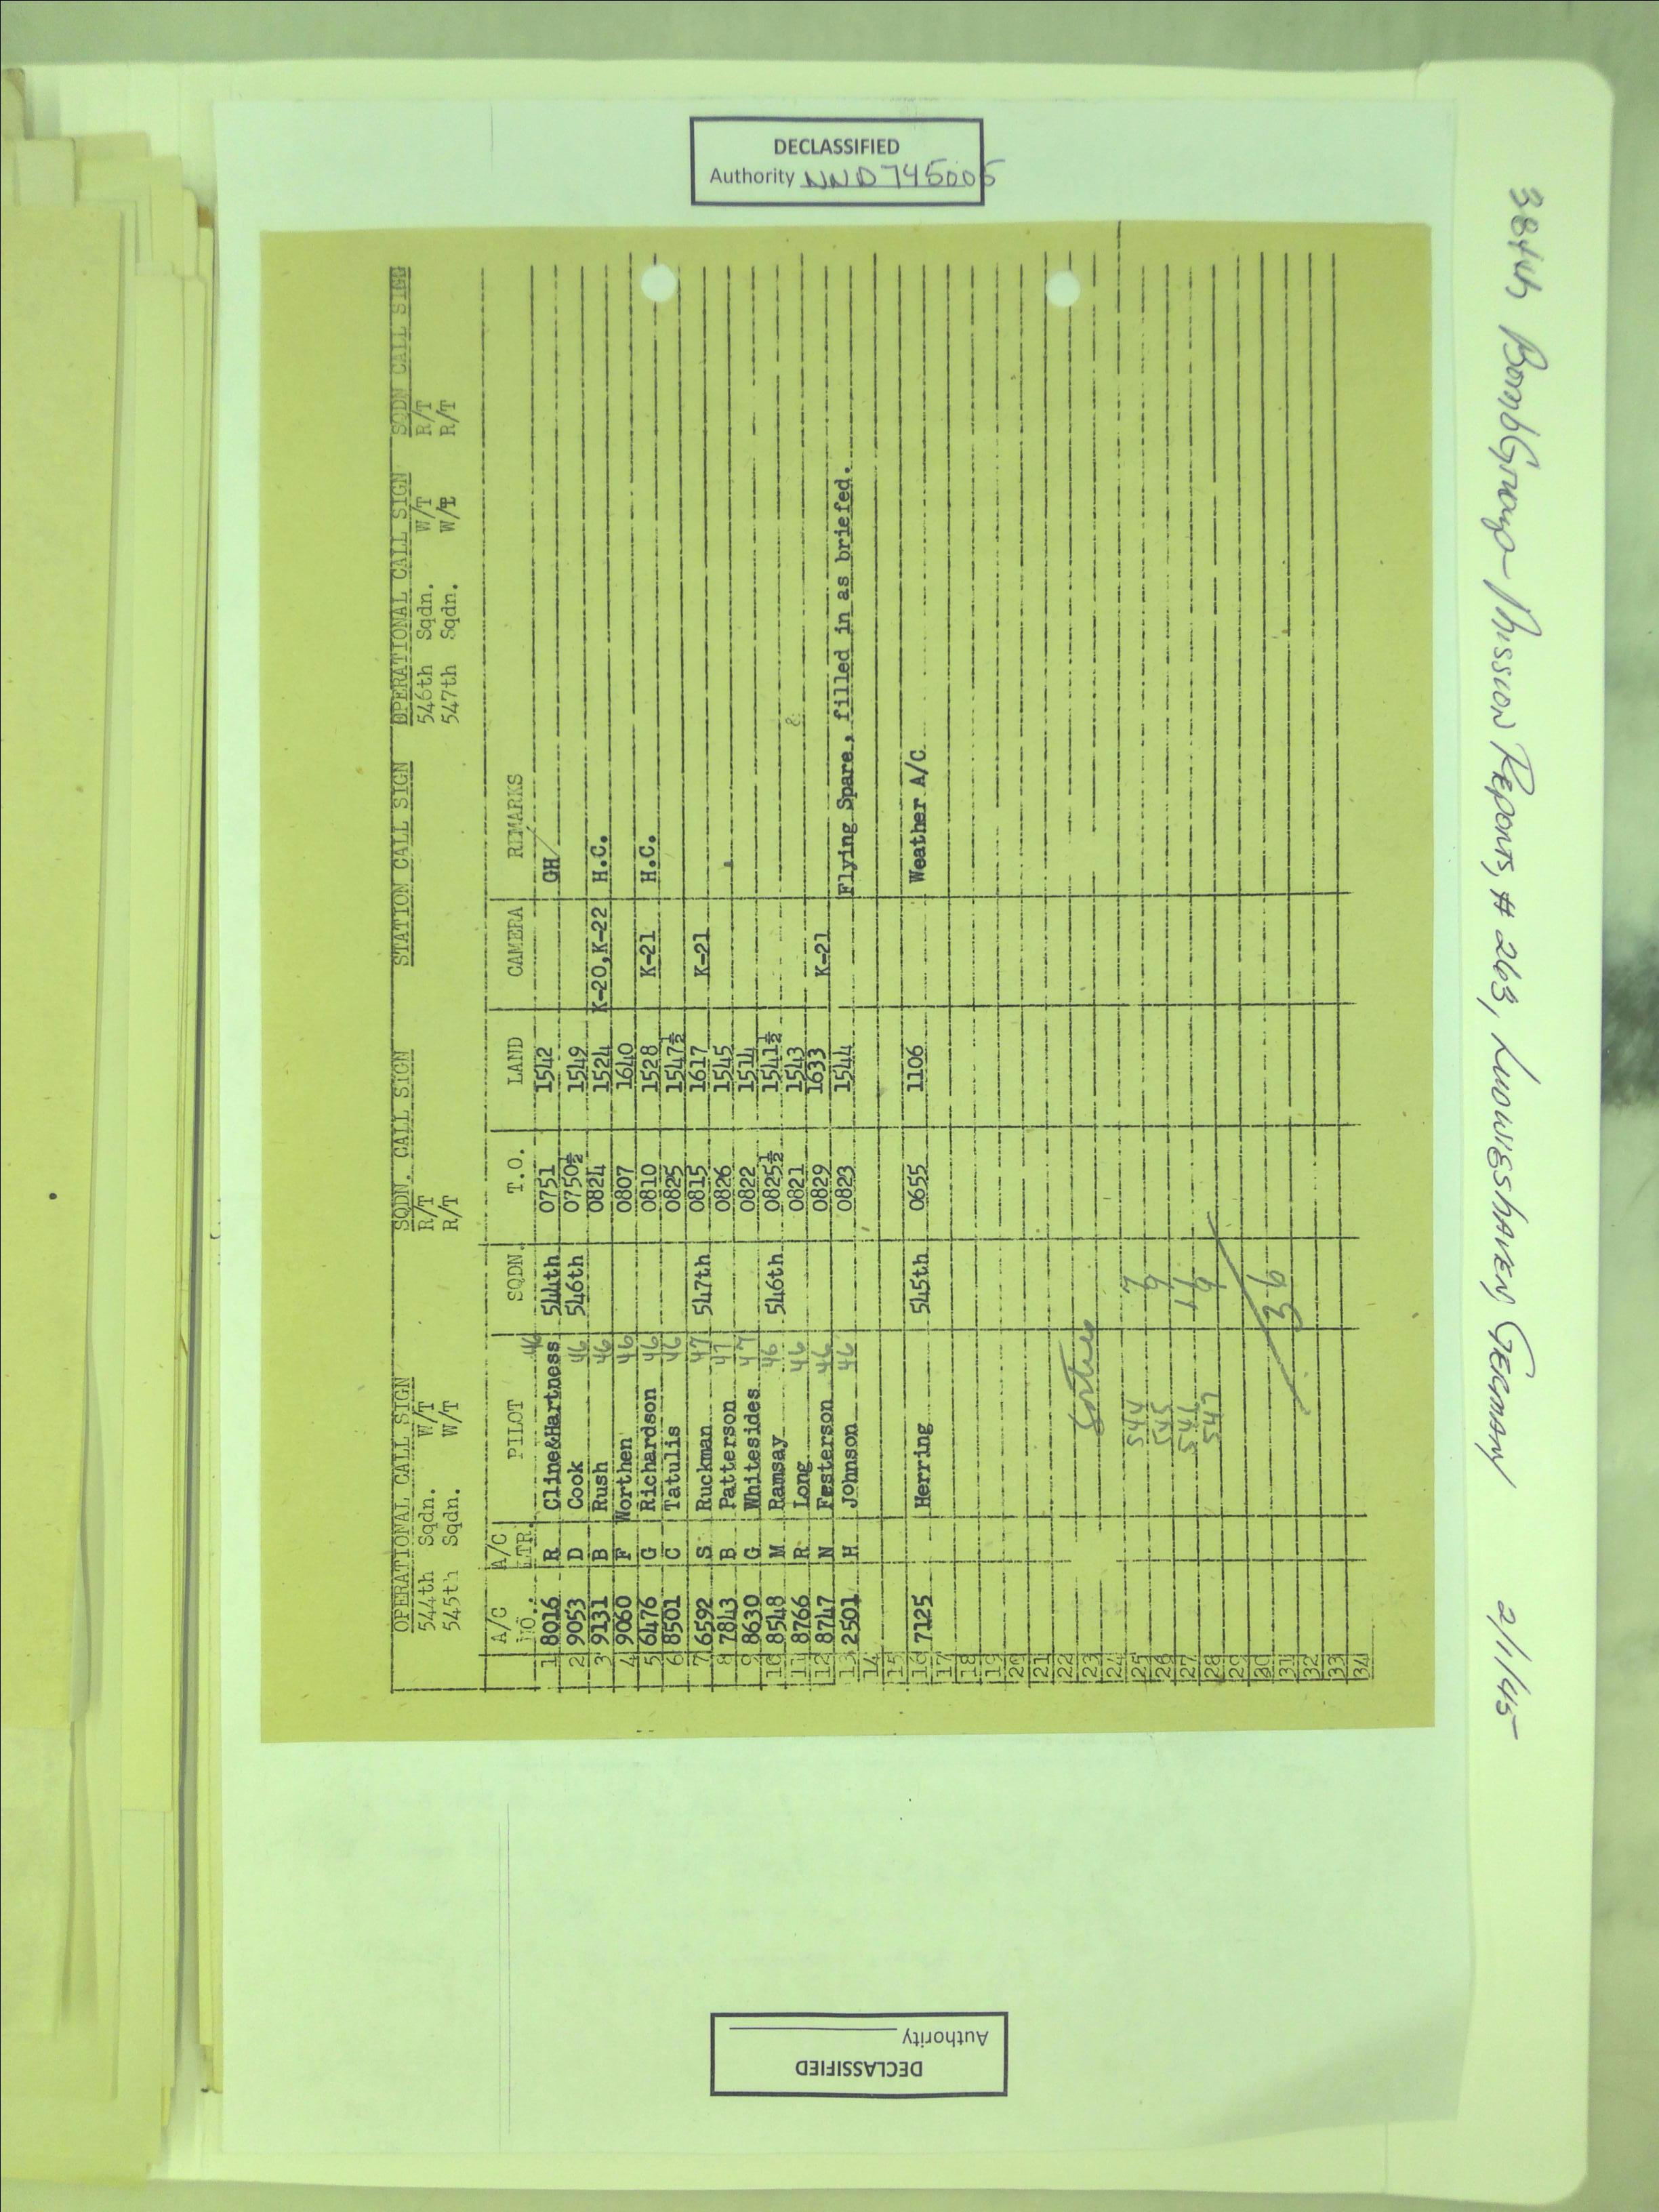 DECLASSIFIED
Authority NND 745005
OPERATIONAL CALL SIGN SQDN. CALL SIGN STATION CALL SIGN OPERATIONAL CALL SIGN SQDN CALL SIGN
544th Sqdn. W/T R/T 546th Sqdn. W/T R/T
545th Sqdn. W/T R/T 547th Sqdn. W/T R/T
A/C NO. A/C LTR. PILOT SQDN. T.O. LAND CAMERA REMARKS
1 8016 R Cline&Hartness 46 544th 0751 1542 GH
2 9053 D Cook 46 546th 0750½ 1549
3 9131 B Rush 46 0824 1524 K-20,K-22 H.C.
4 9060 F Worthen 46 0807 1640
5 6476 G Richardson 46 0810 1528 K-21 H.C.
6 8501 C Tatulis 46 0825 1547½
7 6592 S Ruckman 47 547th 0815 1617 K-21
8 7843 B Patterson 47 0826 1545
9 8630 G Whitesides 47 0822 1514
10 8548 M Ramsay 46 546th 0825½ 1541½
11 8766 R Long 46 0821 1543
12 8747 N Festerson 46 0829 1633 K-21
13 2501 H Johnson 46 0823 1544 Flying Spare, filled in as briefed.
14
15
16 7125 Herring 545th 0655 1106 Weather A/C
17
18
19
20
21
22
23 Sorties
24
25 544 7
26 545 9
27 546 11
28 547 9
29
30 36
31
32
33
34
384th Bomb Group - Mission Reports, # 263, Ludwigshaven, German/ 2/1/45
DECLASSIFIED
Authority